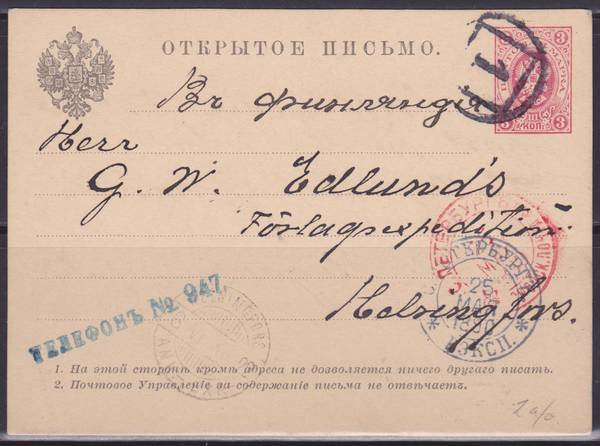 ОТКРЫТОЕ ПИСЬМО.
3 МАРКА 3
3 КОП. 3
1
Въ Финляндiю
Herr
G. W. Edlund's
Förlagsexpedition.
Helsingfors.
ПЕТЕРБУРГЪ
С. ПЕТЕРБУРГЪ
25
МАР.
1890
ЭКСП.
ТЕЛЕФОНЪ № 947
1. На этой сторонѣ кромѣ адреса не дозволяется ничего другаго писать.
2. Почтовое Управленіе за содержаніе письма не отвѣчаетъ.